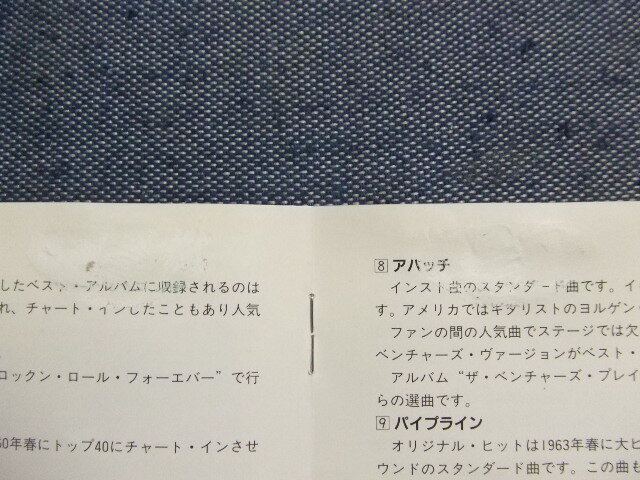 したベスト・アルバムに収録されるのは
れ、チャート・インしたこともあり人気
ロックン・ロール・フォーエバー”で行
60年春にトップ40にチャート・インさせ
8 アパッチ
インスト曲のスタンダード曲です。イ
す。アメリカではギタリストのヨルゲン
ファンの間の人気曲でステージでは欠
ベンチャーズ・ヴァージョンがベスト・
アルバム “ザ・ベンチャーズ・プレイ
らの選曲です。
9 パイプライン
オリジナル・ヒットは1963年春に大ヒ
ウンドのスタンダード曲です。この曲も